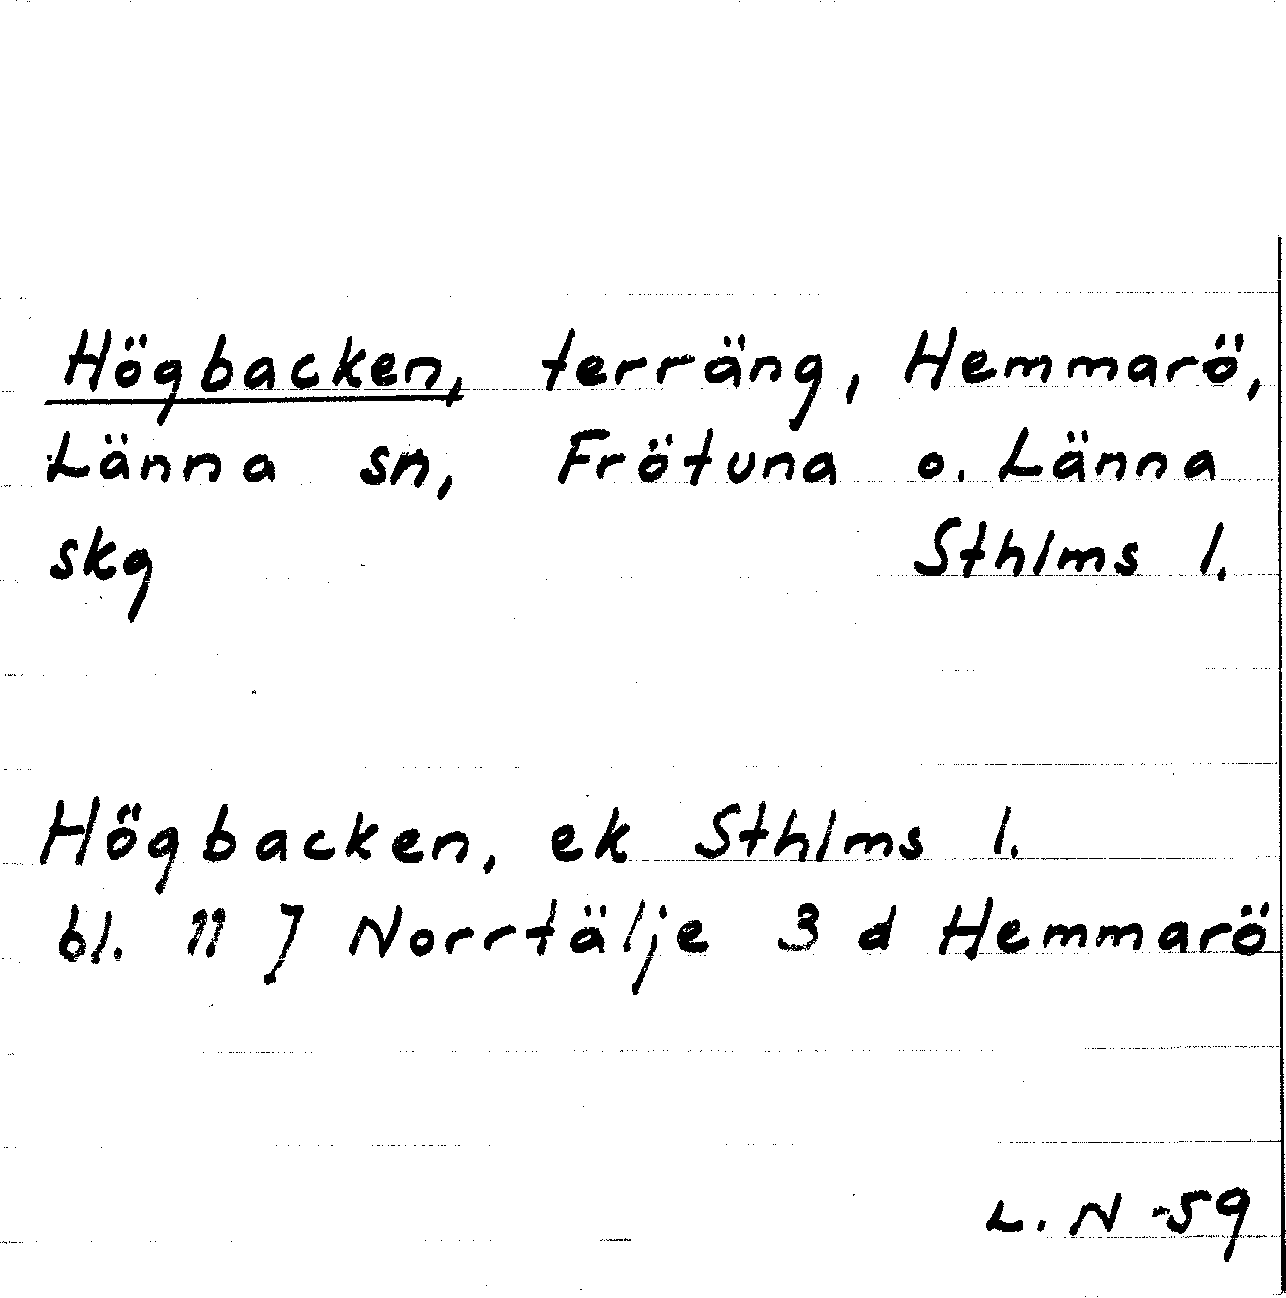 Högbacken, terräng, Hemmarö,
Länna sn, Frötuna o. Länna
skg Sthlms l.
Högbacken, ek Sthlms l.
bl. 11 J Norrtälje 3 d Hemmarö
L. N -59